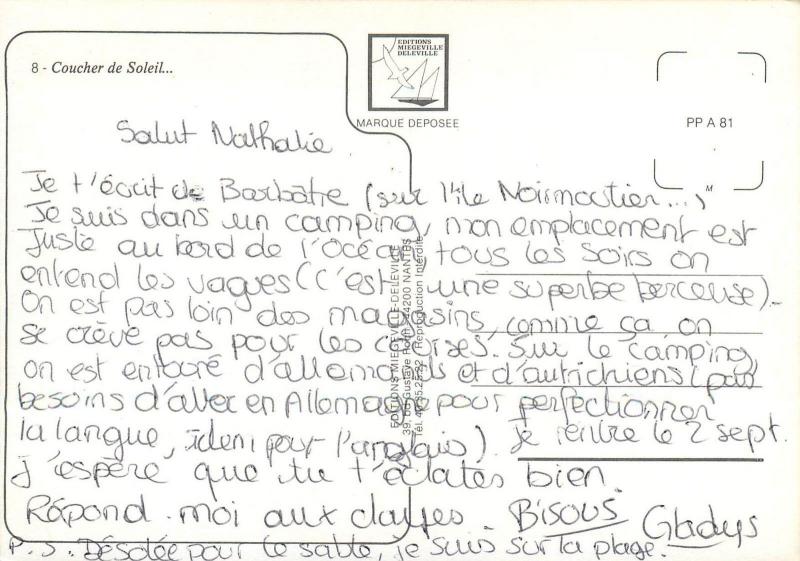 8 - Coucher de Soleil...
EDITIONS
MIEGEVILLE
DELEVILLE
MARQUE DEPOSEE
PP A 81
M
Salut Nathalie
Je t'écrit de Barbâtre (sur l'île Noirmoutier...)
Je suis dans un camping, mon emplacement est
Juste au bord de l'océan tous les soirs on
entend les vagues (c'est une superbe berceuse).
On est pas loin des magasins, comme ça on
se crève pas pour les courses. Sur le camping
on est entouré d'allemands et d'autrichiens (pas
besoins d'aller en Allemagne pour perfectionner
la langue, idem pour l'anglais). Je rentre le 2 sept.
j'espère que tu t'éclates bien
Répond-moi aux Bisous Gladys
P.S. Désolée pour le sable, je suis sur la plage.
EDITIONS MIEGEVILLE-DELEVILLE
Gustave Roch 44200 NANTES
Reproduction Interdite